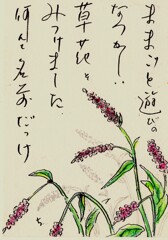 ままごと遊び。
なつかしい
草花を
みつけました
何んて名前だっけ